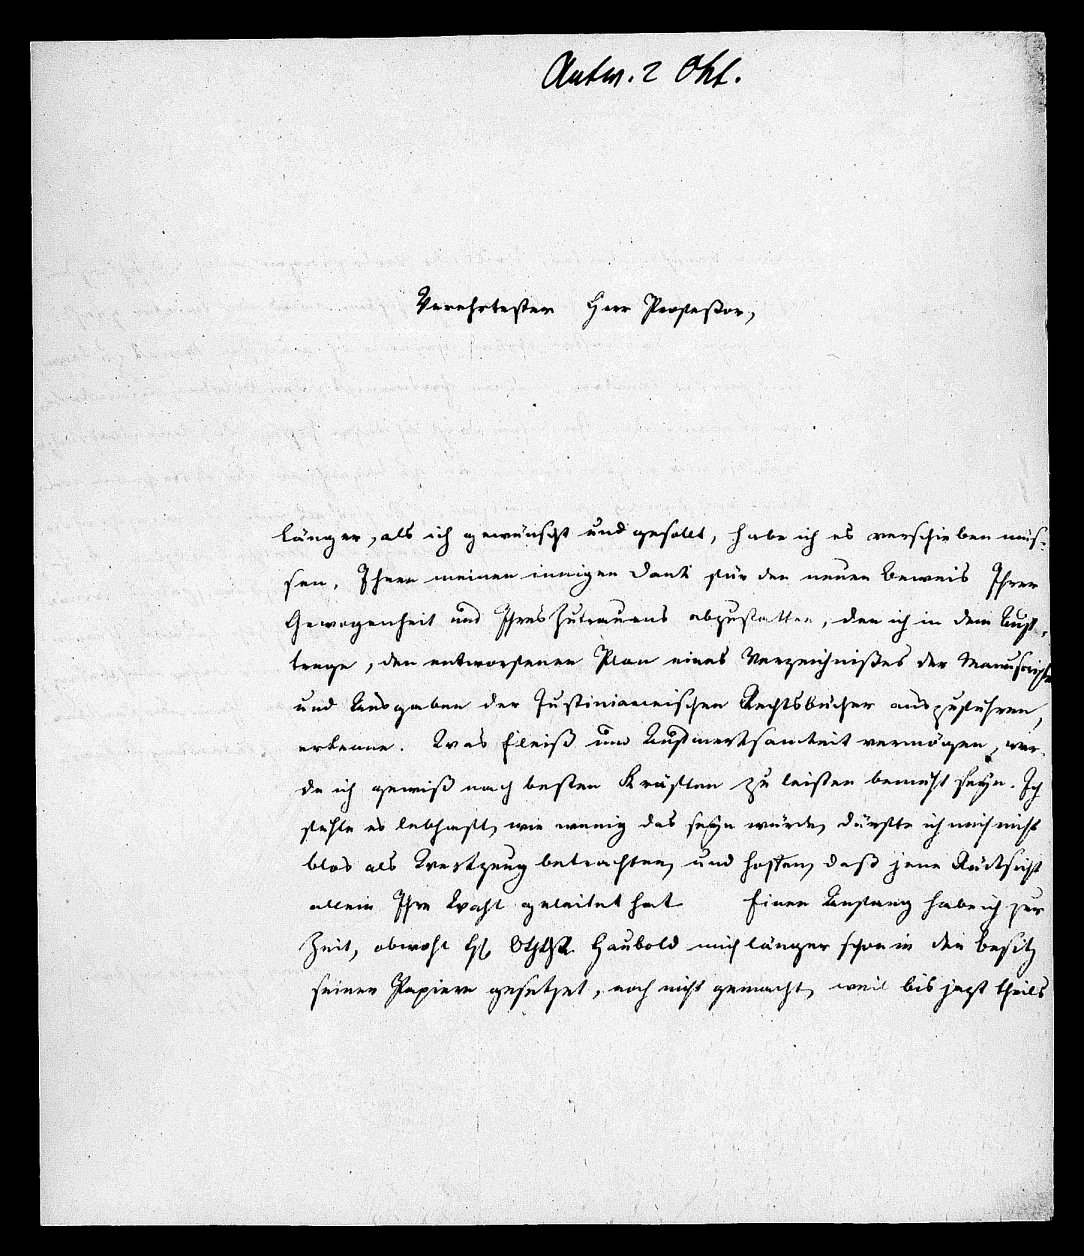 Antw. 2 Okt.
Verehrtester Herr Professor,
Länger, als ich gewünscht und gesollt, habe ich es verschieben müs-
sen, Ihnen meinen innigen Dank für den neuen Beweis Ihrer
Gewogenheit und Ihres Zutrauens abzustatten, den ich in dem Auf-
trage, den entworfenen Plan eines Verzeichnißes der Manuscripte
und Ausgaben der Justinianeischen Rechtsbücher auszuführen,
erkenne. Was Fleiß und Aufmerksamkeit vermögen, wer-
de ich gewiß nach besten Kräften zu leisten bemüht seyn. Ich
fühle es lebhaft, wie wenig das seyn würde, dürfte ich mich nicht
blos als Werkzeug betrachten, und hoffen, daß jene Rücksicht
allein Ihre Wahl geleitet hat. Einen Anfang habe ich zur
Zeit, obwohl H. Haubold mich länger schon in den Besitz
seiner Papiere gesetzet, noch nicht gemacht, weil bis jezt theils